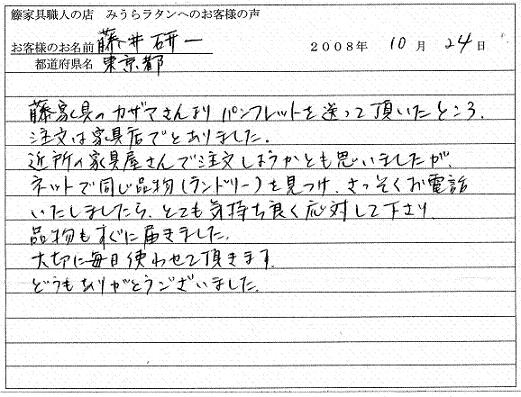 籐家具職人の店　みうらラタンへのお客様の声
お客様のお名前 藤井研一 2008年 10月 24日
都道府県名 東京都
藤家具のカザマさんより パンフレットを送って頂いたところ、
注文は家具店でとありました。
近所の家具屋さんで注文しようかとも思いましたが、
ネットで同じ品物(ランドリー)を見つけ、さっそくお電話
いたしましたら、とても気持ち良く応対して下さり
品物もすぐに届きました。
大切に毎日使わせて頂きます。
どうもありがとうございました。